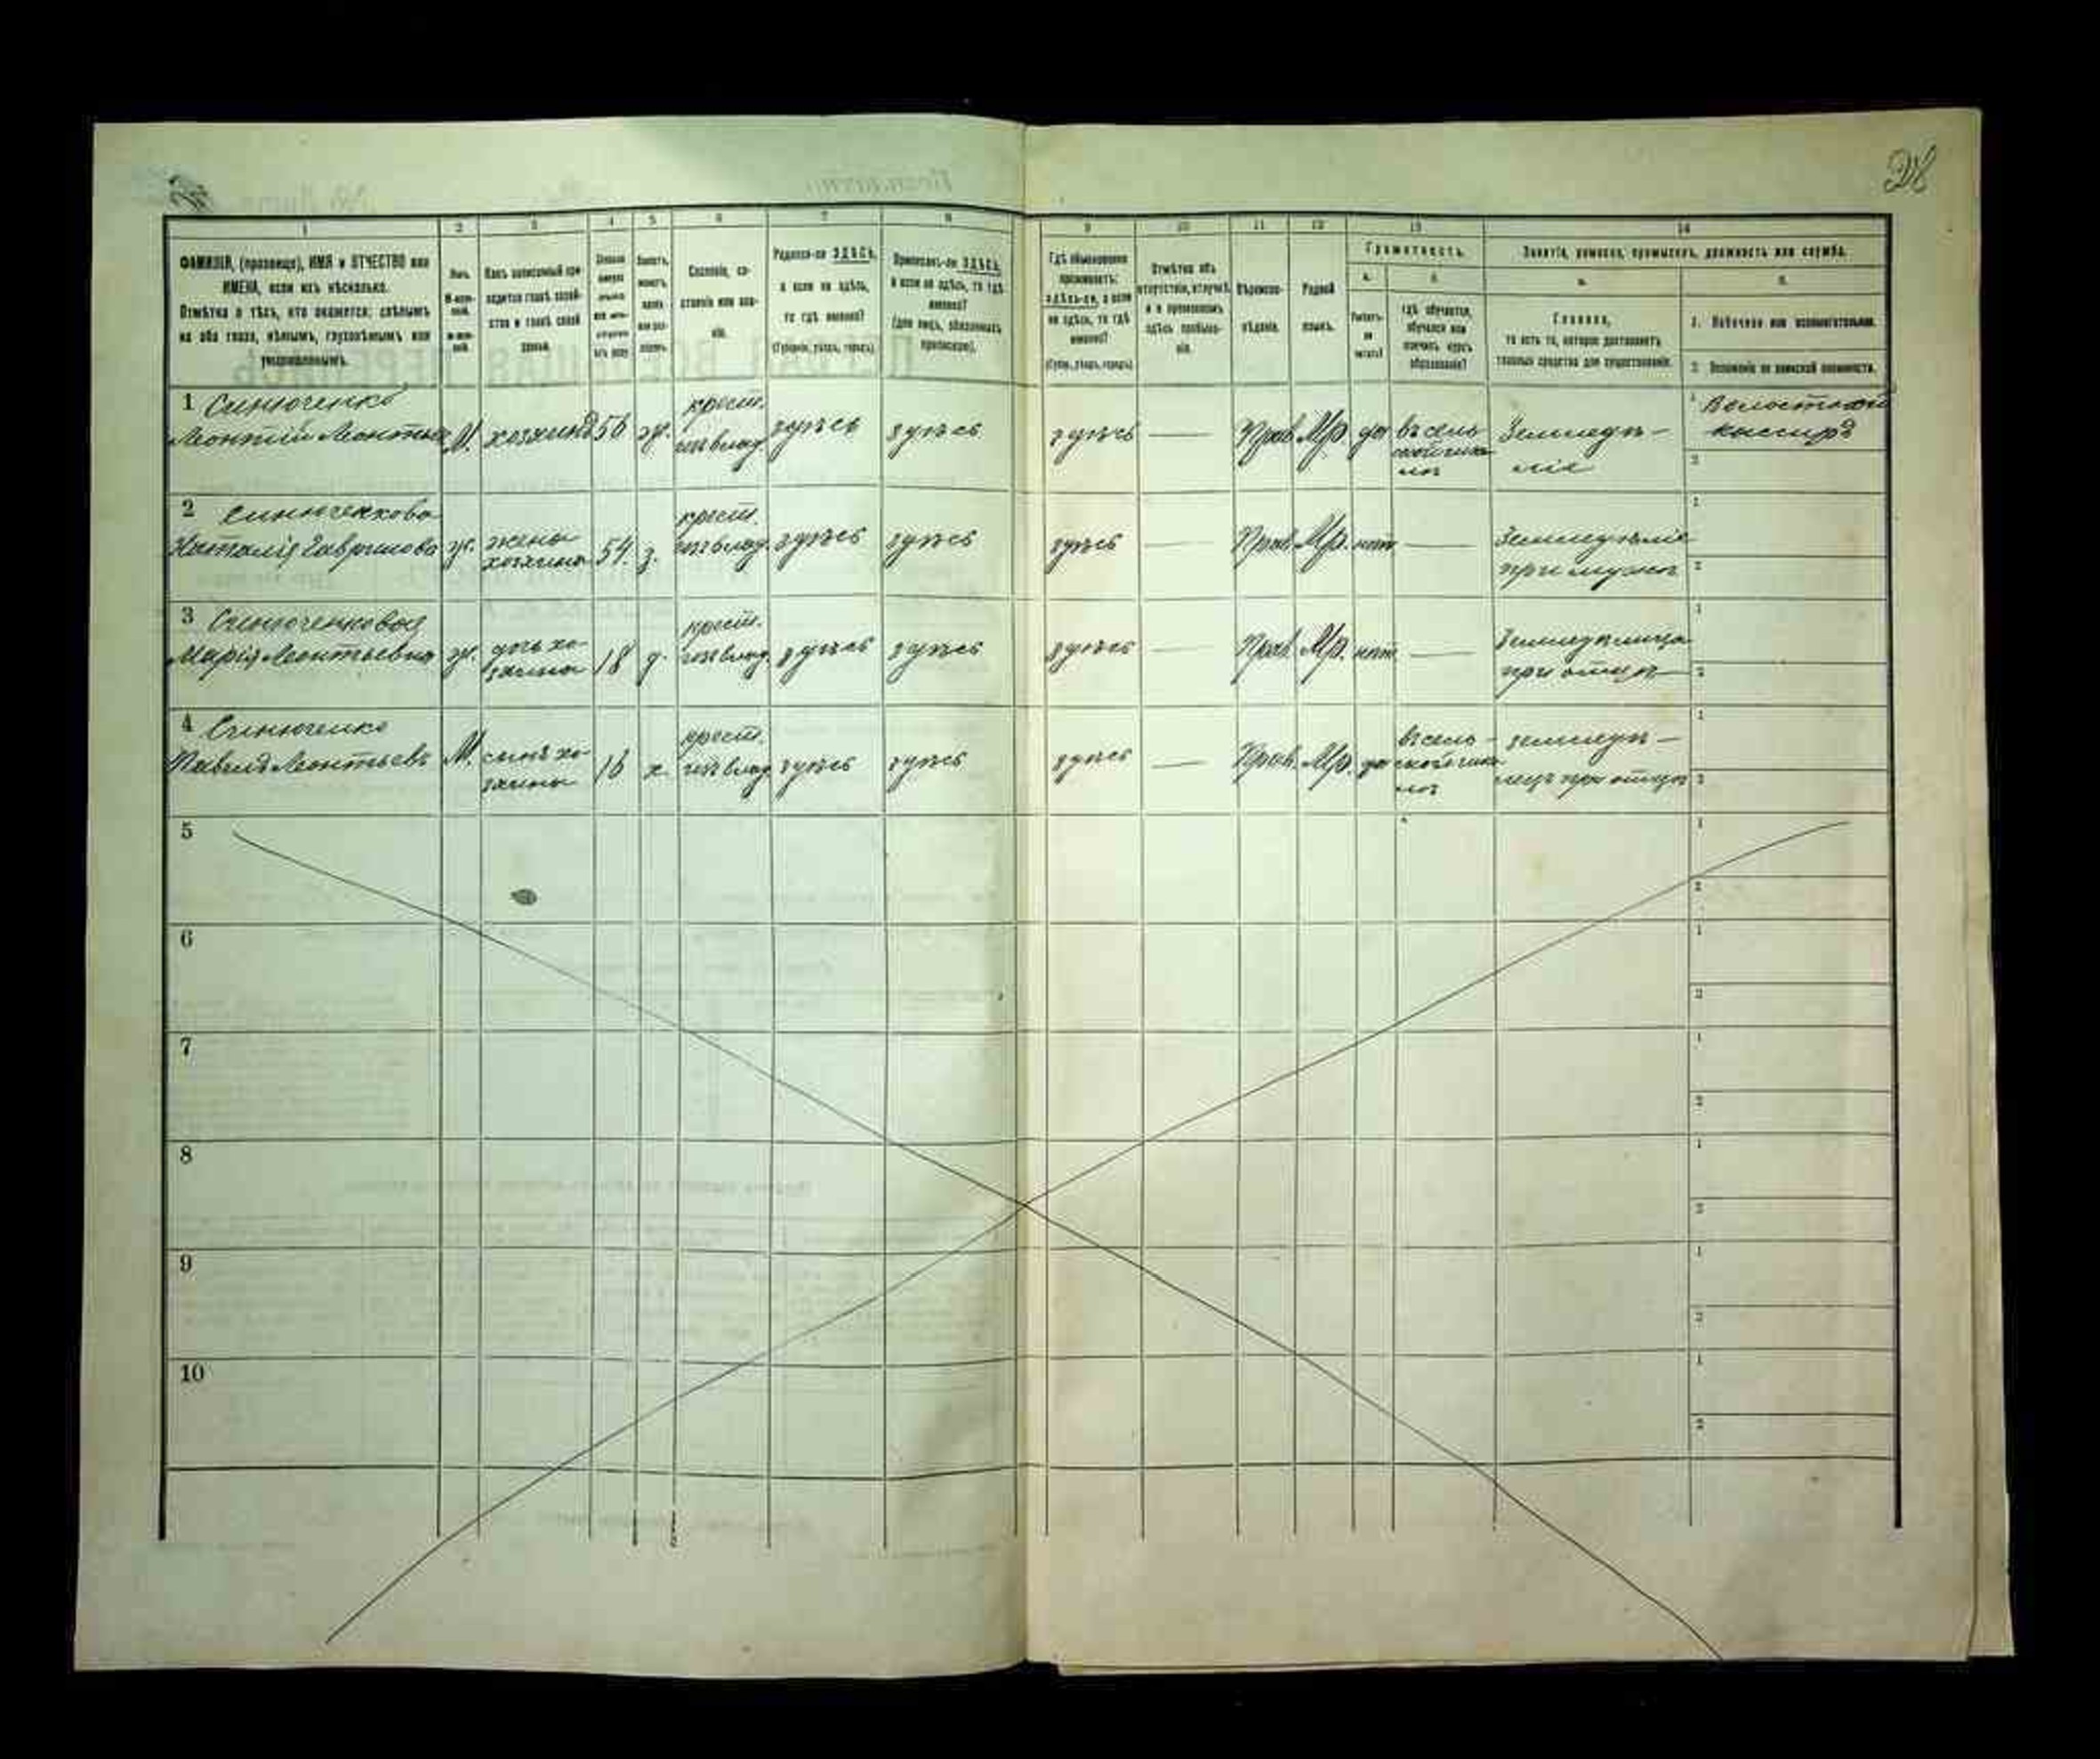 28
1 2 3 4 5 6 7 8 9 10 11 12 13 14
ФАМИЛІЯ, (прозвище), ИМЯ и ОТЧЕСТВО или
ИМЕНА, если ихъ нѣсколько.
Отмѣтка о тѣхъ, кто окажется: слѣпымъ
на оба глаза, нѣмымъ, глухонѣмымъ или
умалишеннымъ.
Полъ.
М-муж-
ской.
Ж-жен-
скій.
Какъ записанный при-
ходится главѣ хозяй-
ства и главѣ своей
семьи.
Сословіе, со-
стояніе или зва-
ніе.
Родился-ли ЗДѢСЬ,
а если не здѣсь,
то гдѣ именно?
(Губернія, уѣздъ, городъ).
Приписанъ-ли ЗДѢСЬ,
а если не здѣсь, то гдѣ
именно?
(для лицъ, обязанныхъ
припискою).
Гдѣ обыкновенно
проживаетъ:
здѣсь-ли, а если
не здѣсь, то гдѣ
именно?
(Губер., уѣздъ, городъ)
Отмѣтка объ
отсутствіи, отлучкѣ
и о временномъ
здѣсь пребыва-
ніи.
Вѣроиспо-
вѣданіе.
Родной
языкъ.
Грамотность.
а.
б.
Умѣетъ-
ли
читать?
Гдѣ обучается,
обучался или
кончилъ курсъ
образованія?
Занятіе, ремесло, промыселъ, должность или служба.
а.
б.
Главное,
то есть то, которое доставляетъ
главныя средства для существованія.
1. Побочное или вспомогательное.
2. Положеніе по воинской повинности.
1 Синюченко
Леонтій Леонтьев М. хозяинъ 56 ж. крест.
изъ влад. здѣсь здѣсь здѣсь — Прав. Мр. да въ сель
ской шко
лѣ Земледѣ-
ліе 1 Волостной
кассиръ
2
2 Синюченкова
Наталія Гаврилова ж. жена
хозяина 54. з. крест.
изъ влад. здѣсь здѣсь здѣсь — Прав. Мр. нѣт — Земледѣліе
при мужѣ 1
2
3 Синюченковая
Марія Леонтьевна ж. дочь хо-
зяина 18 д. крест.
изъ влад. здѣсь здѣсь здѣсь — Прав. Мр. нѣт — Земледѣлица
при отцѣ 1
2
4 Синюченко
Павелъ Леонтьевъ М. сынъ хо-
зяина 16 х. крест.
изъ влад. здѣсь здѣсь здѣсь — Прав. Мр. да въ сель-
ской шко
лѣ земледѣ-
лецъ при отцѣ 1
2
5 1
2
6 1
2
7 1
2
8 1
2
9 1
2
10 1
2